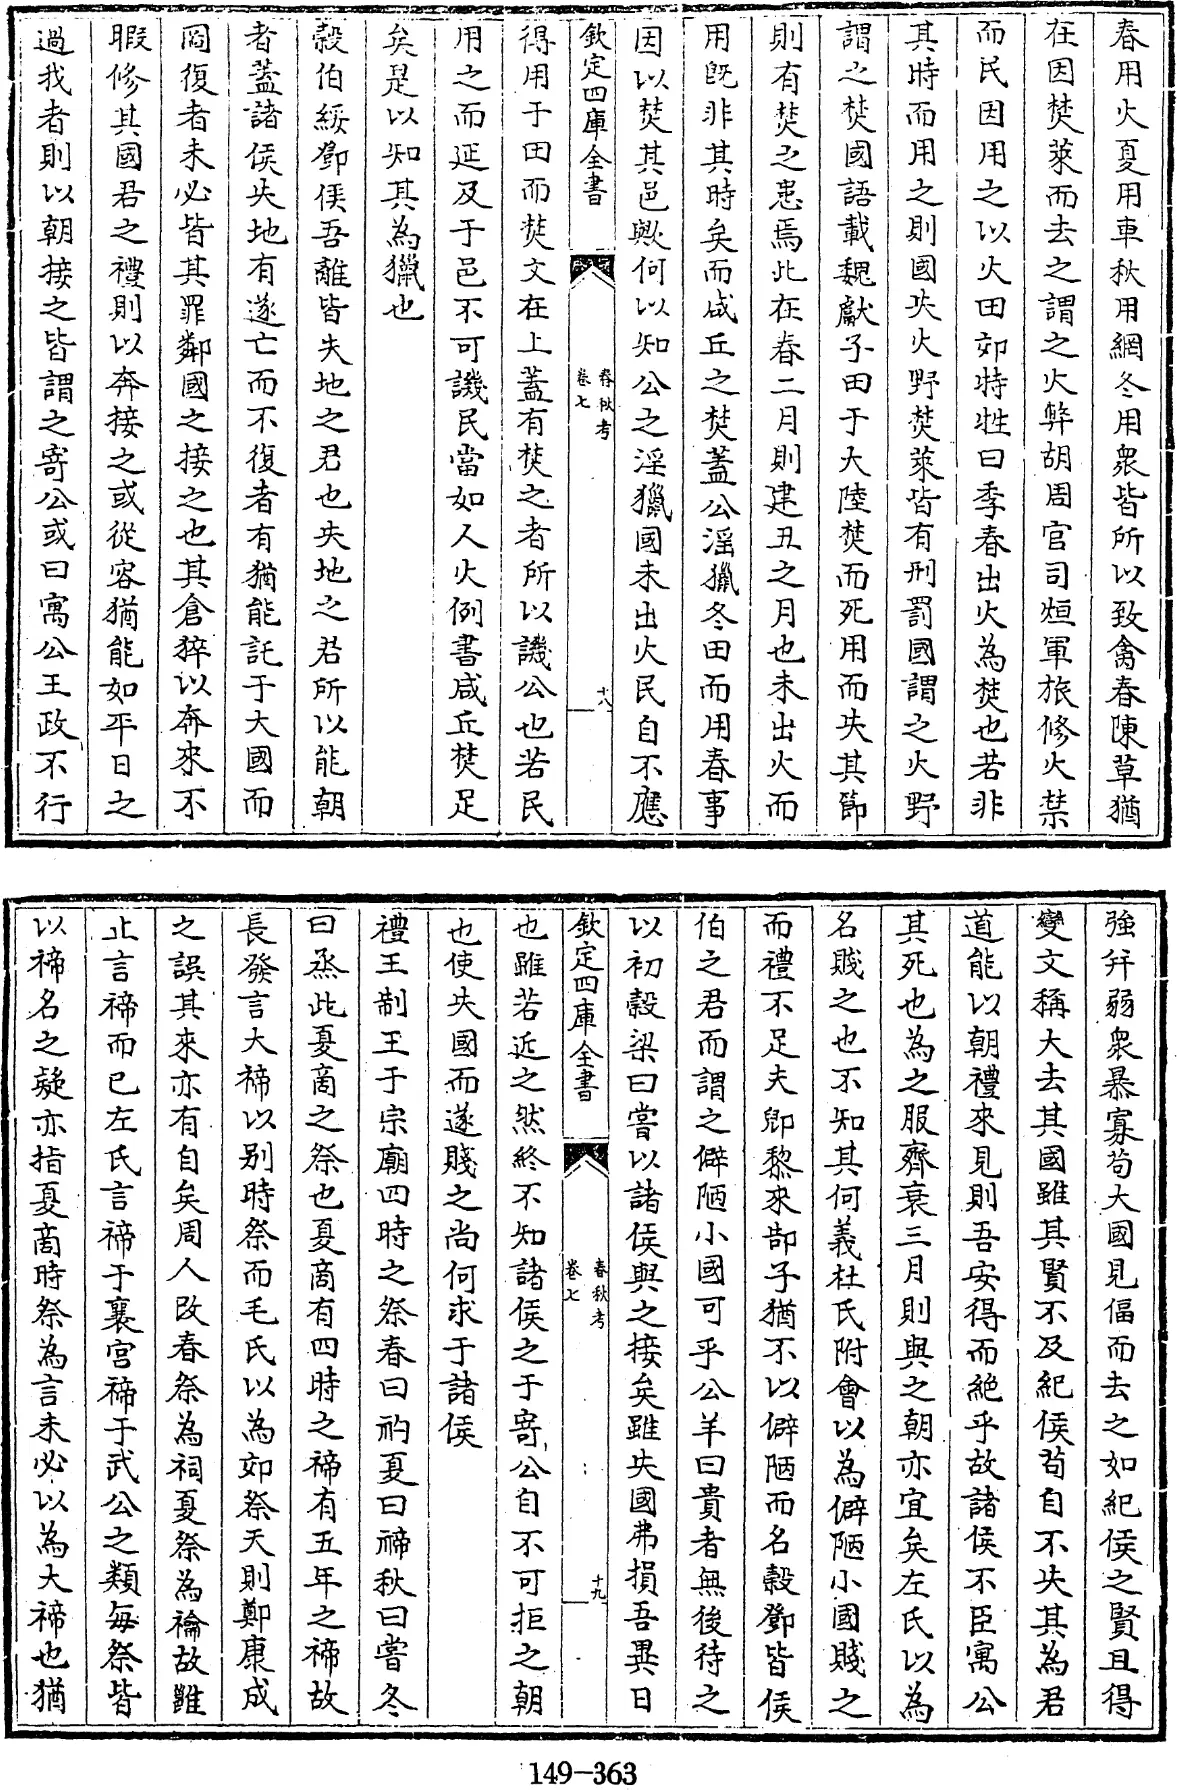 春用火夏用車秋用網冬用衆皆所以致禽春陳草猶
在因焚萊而去之謂之火弊胡周官司烜軍旅修火禁
而民因用之以火田郊特牲曰季春出火為焚也若非
其時而用之則國失火野焚萊皆有刑罰國謂之火野
謂之焚國語載魏獻子田于大陸焚而死用而失其節
則有焚之患焉此在春二月則建丑之月也未出火而
用既非其時矣而咸丘之焚蓋公淫獵冬田而用春事
因以焚其邑歟何以知公之淫獵國未出火民自不應
欽定四庫全書 春秋考 卷七 十八
得用于田而焚文在上蓋有焚之者所以譏公也若民
用之而延及于邑不可譏民當如人火例書咸丘焚足
矣是以知其為獵也
穀伯綏鄧侯吾離皆失地之君也失地之君所以能朝
者蓋諸侯失地有遂亡而不復者有猶能託于大國而
圖復者未必皆其罪鄰國之接之也其倉猝以奔來不
暇修其國君之禮則以奔接之或從容猶能如平日之
過我者則以朝接之皆謂之寄公或曰寓公王政不行
強弁弱衆暴寡茍大國見偪而去之如紀侯之賢且得
變文稱大去其國雖其賢不及紀侯茍自不失其為君
道能以朝禮來見則吾安得而絶乎故諸侯不臣寓公
其死也為之服齊衰三月則與之朝亦宜矣左氏以為
名賤之也不知其何義杜氏附會以為僻陋小國賤之
而禮不足夫郳黎來郜子猶不以僻陋而名穀鄧皆侯
伯之君而謂之僻陋小國可乎公羊曰貴者無後待之
以初穀梁曰嘗以諸侯與之接矣雖失國弗損吾異日
欽定四庫全書 春秋考 卷七 十九
也雖若近之然終不知諸侯之于寄公自不可拒之朝
也使失國而遂賤之尚何求于諸侯
禮王制王于宗廟四時之祭春曰礿夏曰禘秋曰嘗冬
曰烝此夏商之祭也夏商有四時之禘有五年之禘故
長發言大禘以别時祭而毛氏以為郊祭天則鄭康成
之誤其來亦有自矣周人改春祭為祠夏祭為禴故雖
止言禘而已左氏言禘于襄宫禘于武公之類每祭皆
以禘名之疑亦指夏商時祭為言未必以為大禘也猶
149-363